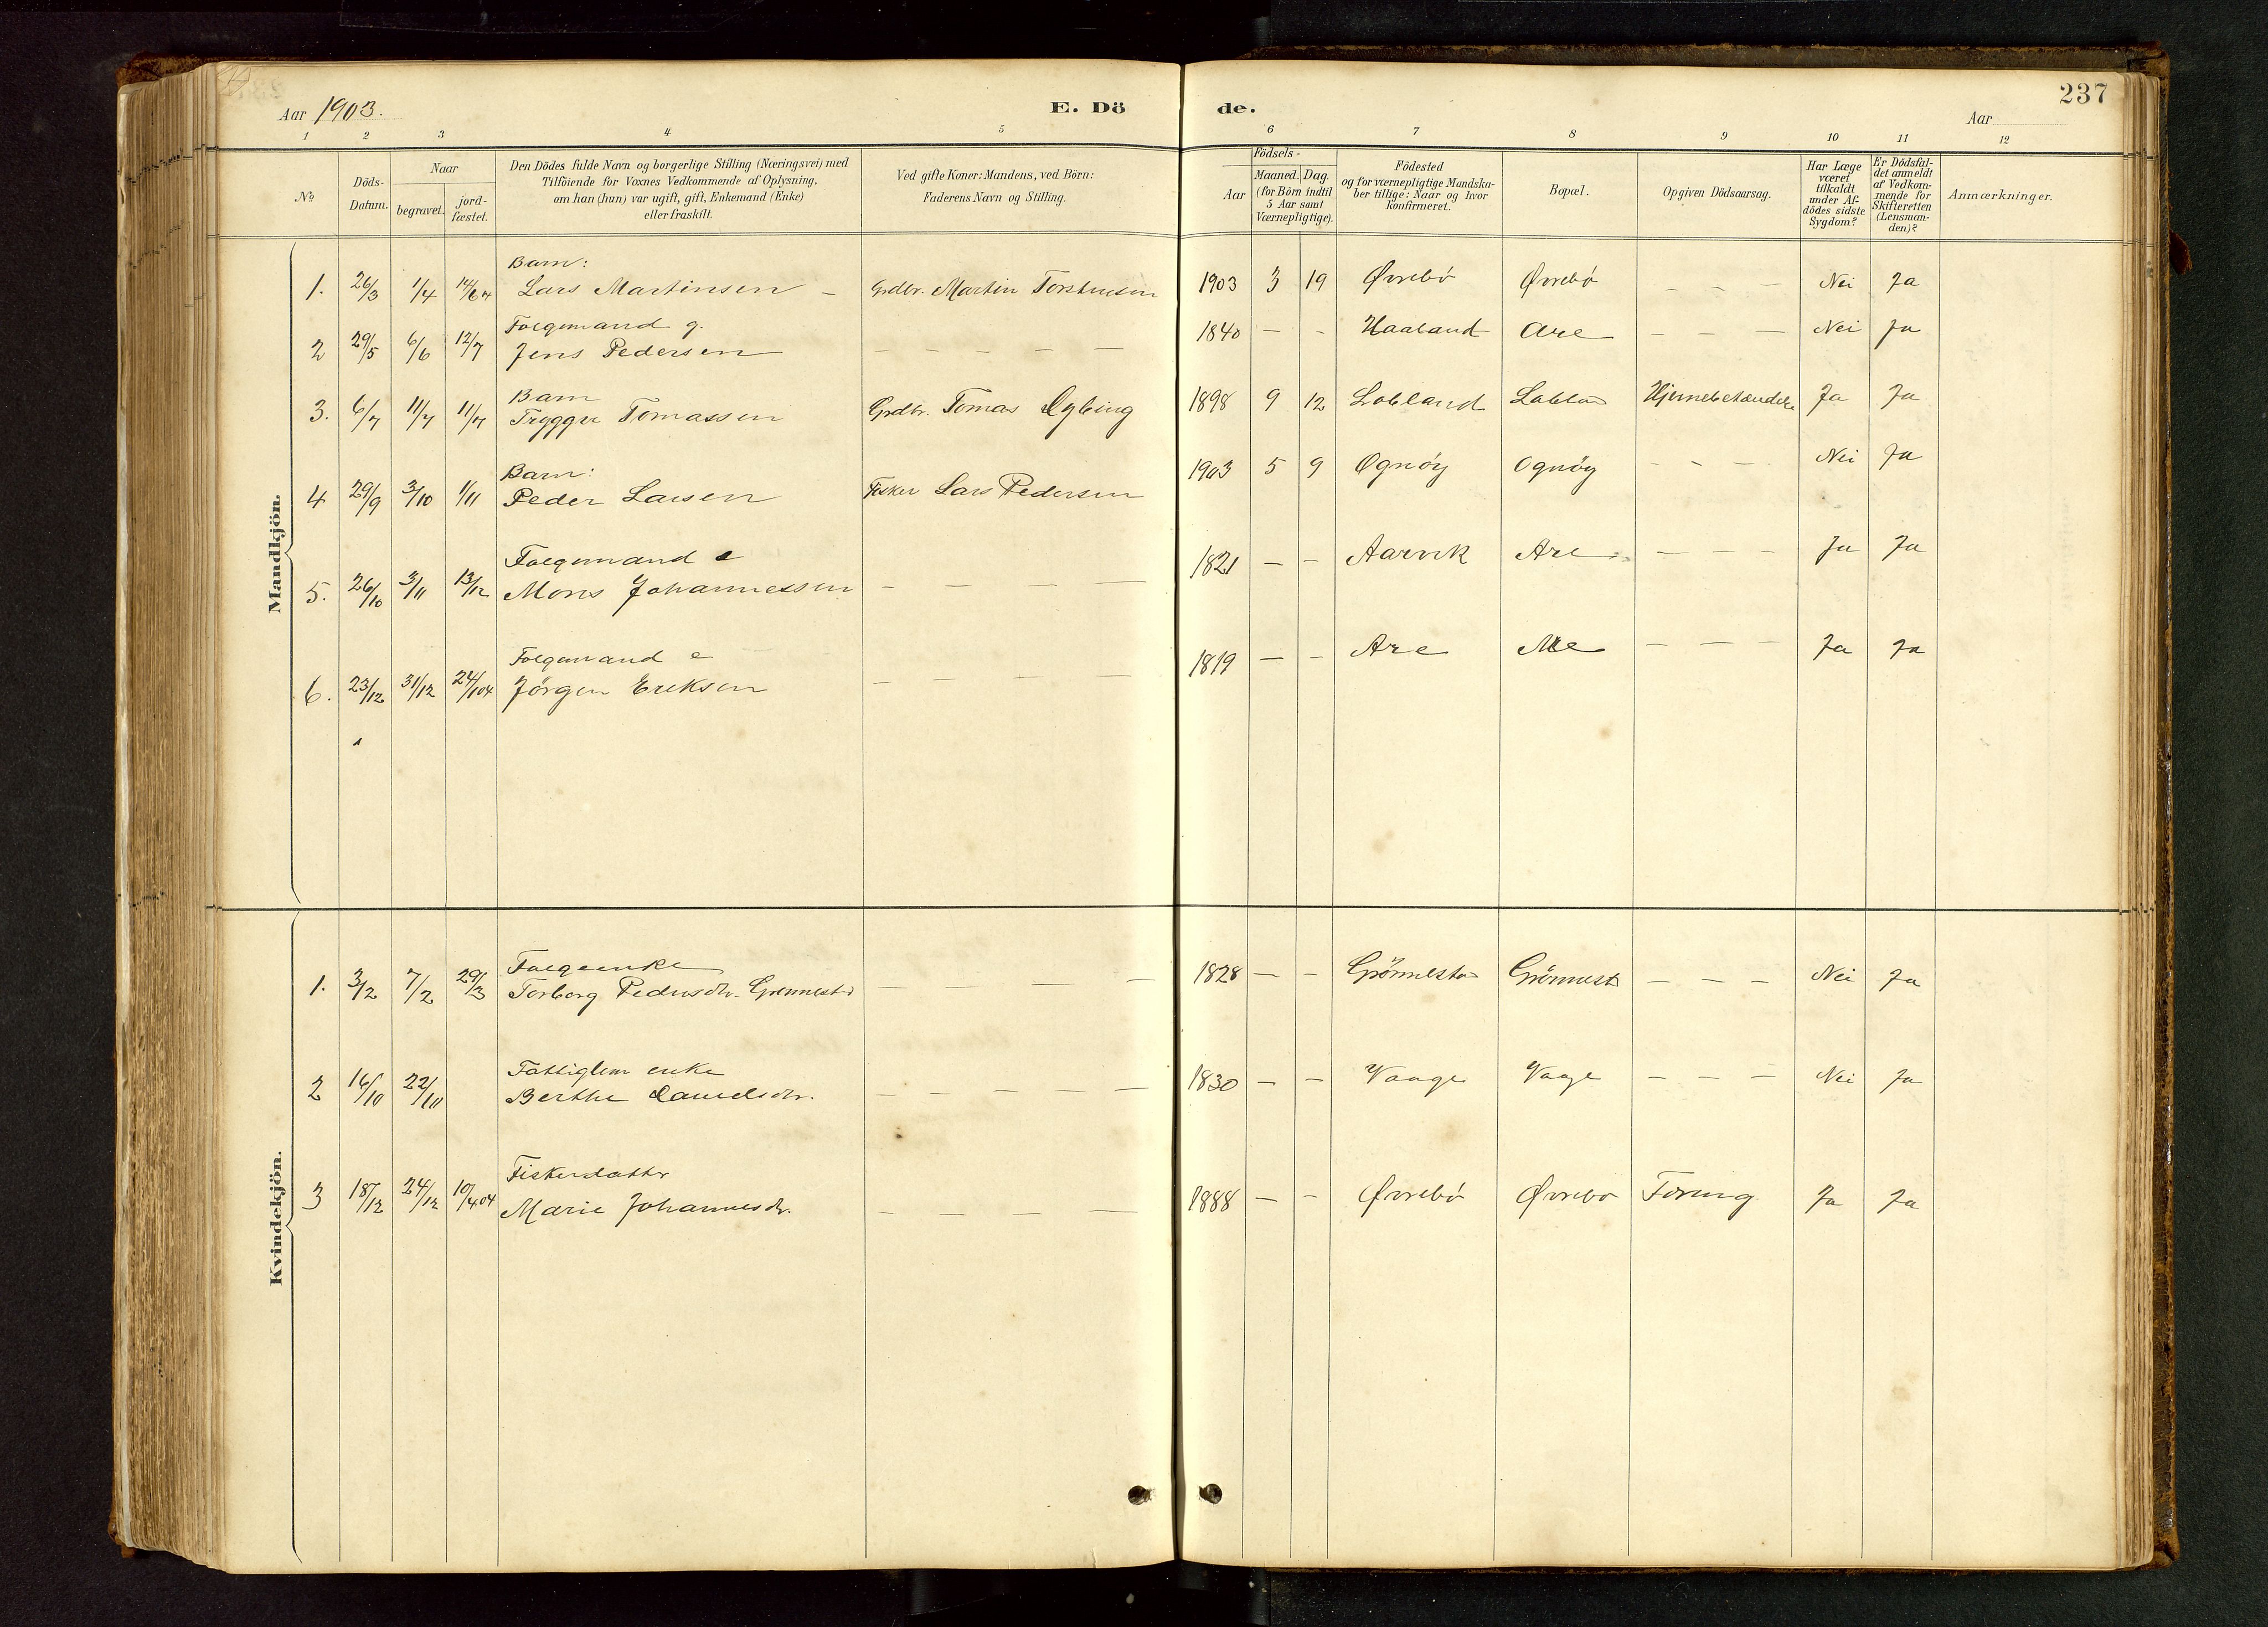 Aar 1903.
E. Dö
de.
237
Aar
1 2 3 4 5 6 7 8 9 10 11 12
No
Döds-
Datum.
Naar
begravet.
jord-
fæstet.
Den Dödes fulde Navn og borgerlige Stilling (Næringsvei) med
Tilföiende for Voxnes Vedkommende af Oplysning,
om han (hun) var ugift, gift, Enkemand (Enke)
eller fraskilt.
Ved gifte Koner: Mandens, ved Börn:
Faderens Navn og Stilling.
Födsels-
Aar
Maaned. Dag.
(for Börn indtil
5 Aar samt
Værnepligtige).
Födested
og for værnepligtige Mandska-
ber tillige: Naar og hvor
konfirmeret.
Bopæl.
Opgiven Dödsaarsag.
Har Læge
været
tilkaldt
under Af-
dödes sidste
Sygdom?
Er Dödsfal-
det anmeldt
af Vedkom-
mende for
Skifteretten
(Lensman-
den)?
Anmærkninger.
Mandkjön.
Barn:
1. 26/3 1/4 14/6 04 Lars Martinsen – Grdbr. Martin Torstensen 1903 3 19 Øvrebö Øvrebö – – – Nei Ja
Folgemand g.
2 29/5 6/6 12/7 Jens Pedersen – – – – – 1840 – – Haaland Are – – – Nei Ja
Barn
3. 6/7 11/7 11/7 Tryggve Tomassen Grdbr. Tomas Dybing 1898 9 12 Lobland Hjernebetændelse Ja Ja
Barn:
4 29/9 3/10 1/11 Peder Larsen Fisker Lars Pedersen 1903 5 9 Ognöy Ognöy – – – Nei Ja
Folgemand e
5. 26/10 3/11 13/12 Mons Johannessen – – – – 1821 – – Aarvik Are – – – Ja Ja
Folgemand e
6. 23/12 31/12 24/1 04 Jörgen Eriksen – – – – – 1819 – – Are Are – – – Ja Ja
Kvindekjön.
Folgeenke
1. 3/2 7/2 29/3 Torborg Pedersdtr. Grönnestad – – – – 1828 – – Grönnestad Grönnestad – – – Nei Ja
Fattiglem enke
2 16/10 22/10 Berthe Danielsdtr. – – – – – 1830 – – Vaage Vaage – – – Nei Ja
Fiskerdatter
3 18/12 24/12 10/4 04 Marie Johannesdtr. – – – – 1888 – – Øvrebö Øvrebö Tæring Ja Ja